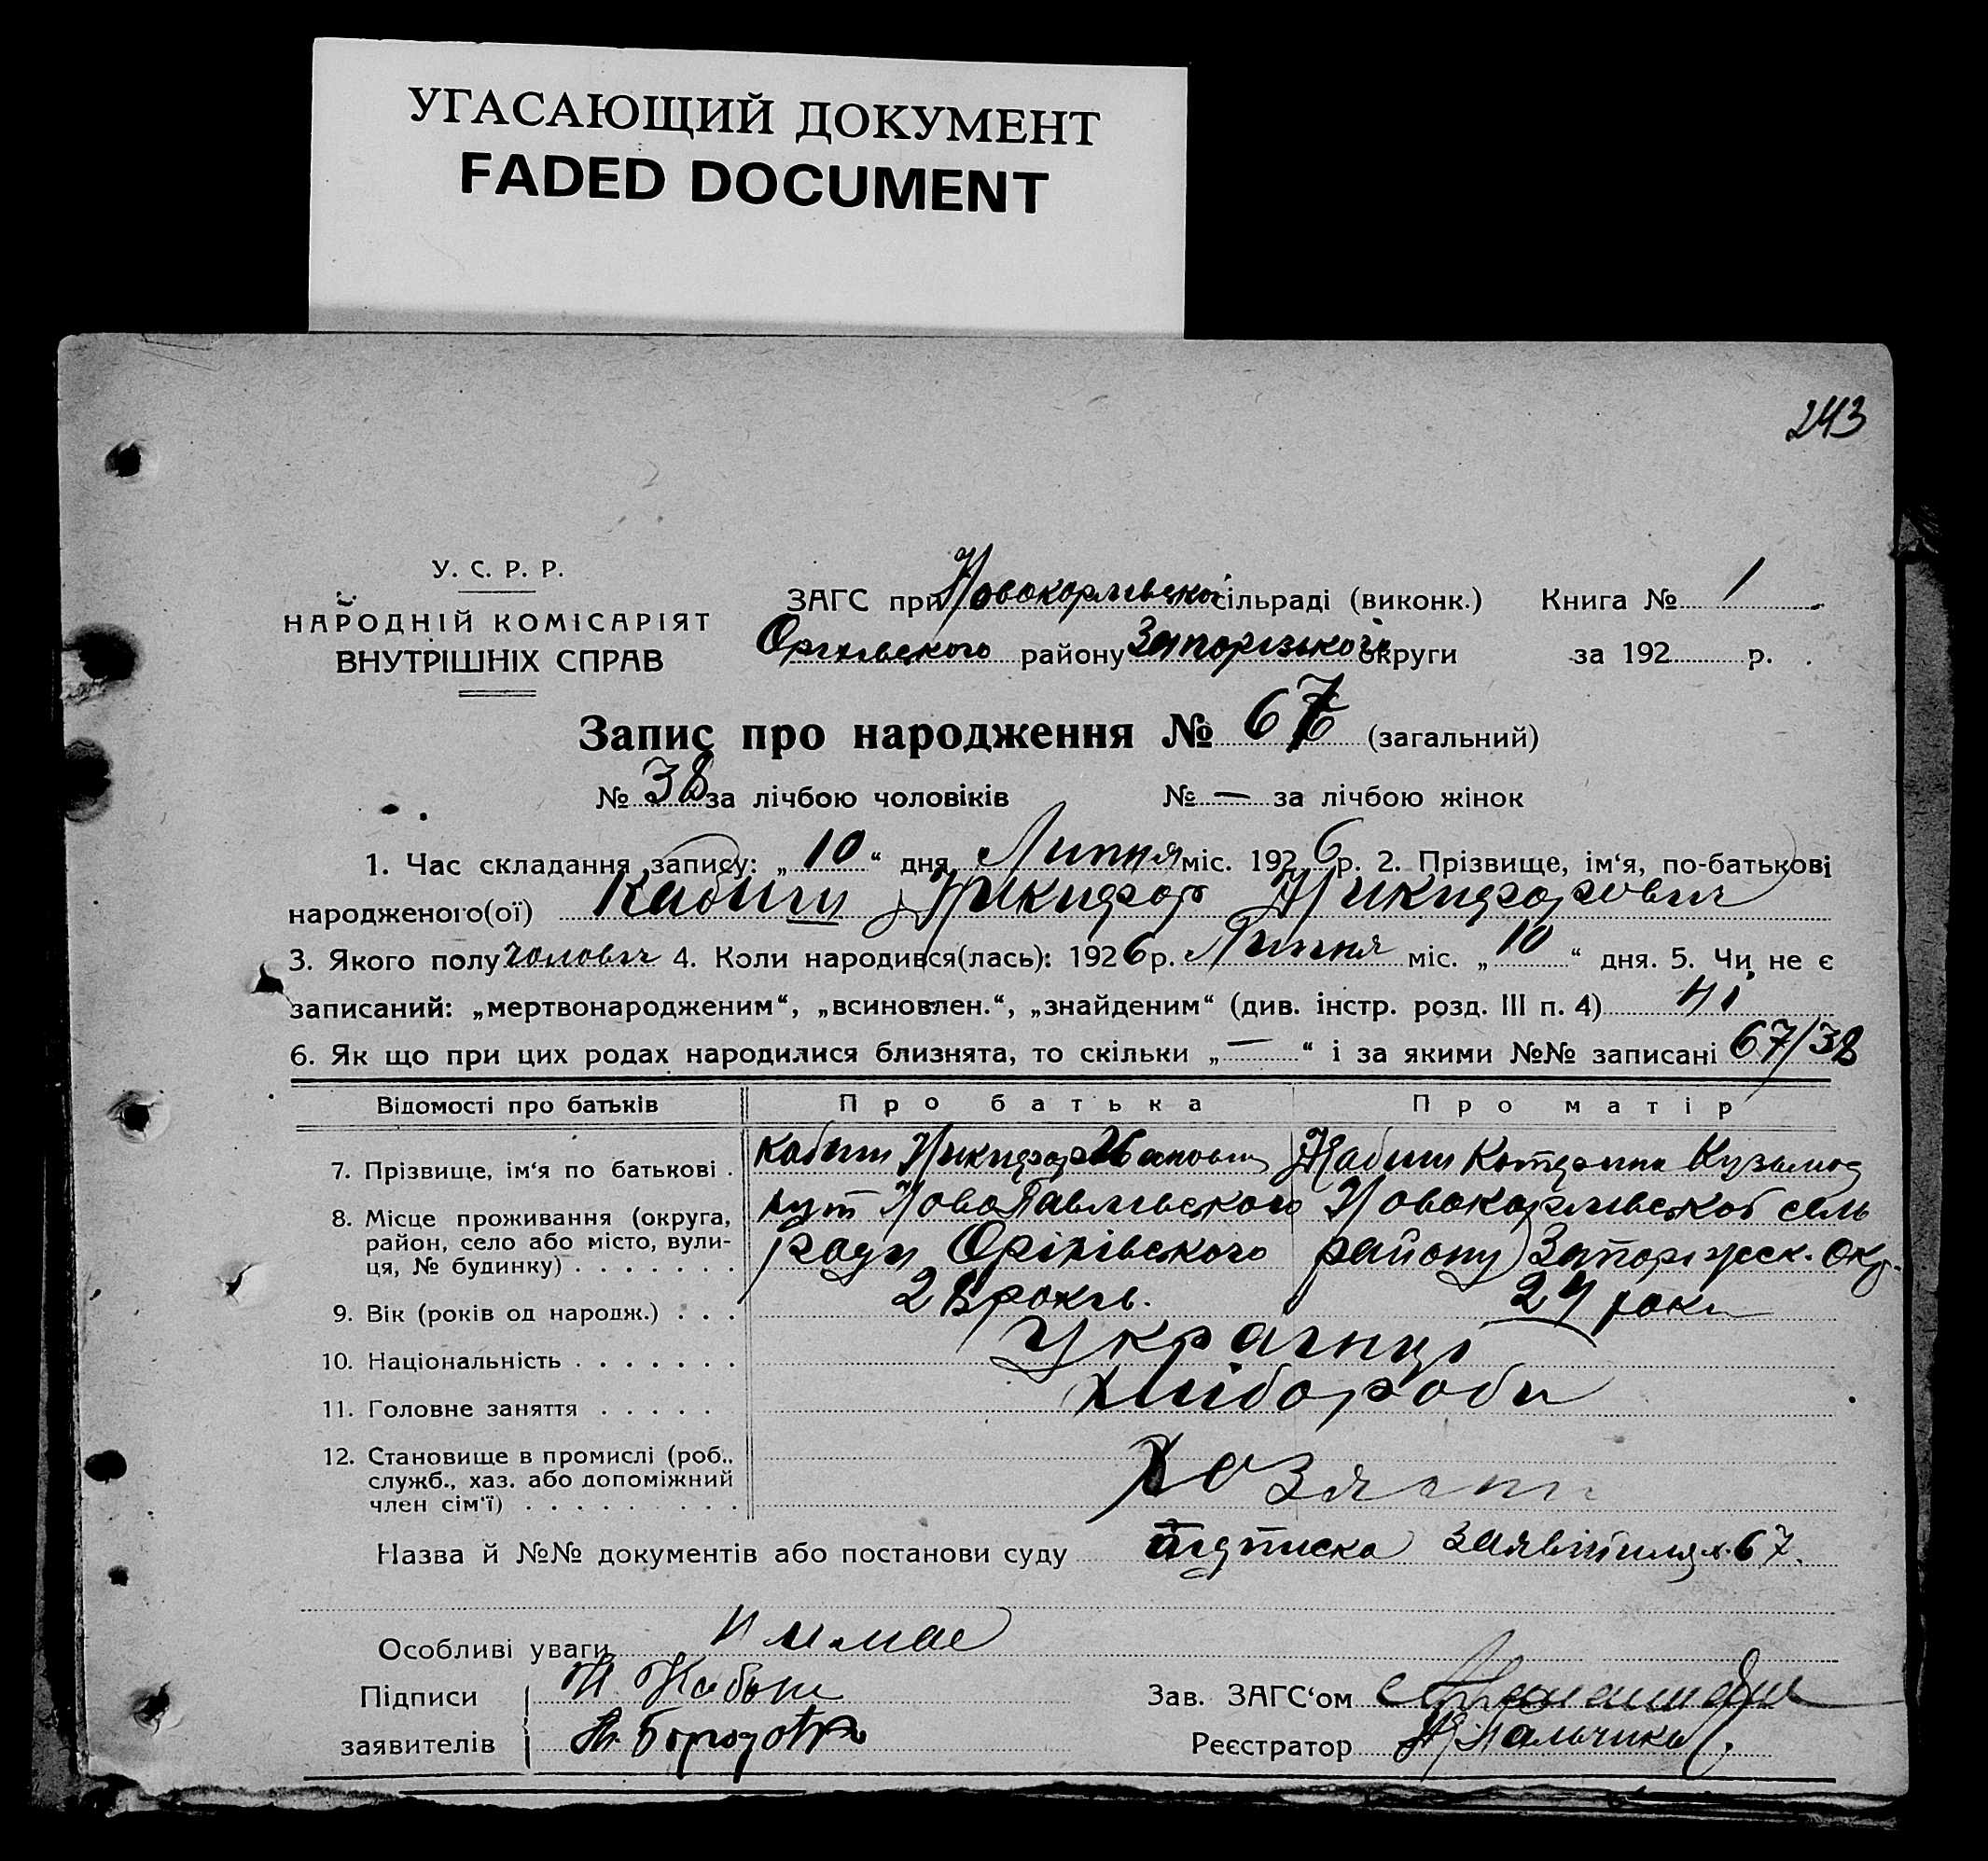 УГАСАЮЩИЙ ДОКУМЕНТ
FADED DOCUMENT
243
У. С. Р. Р.
НАРОДНІЙ КОМІСАРІЯТ
ВНУТРІШНІХ СПРАВ
ЗАГС при Новокарлівської сільраді (виконк.) Книга № 1
Оріхівського району Запорізького округи за 192 р.
Запис про народження № 67 (загальний)
№ 38 за лічбою чоловіків № — за лічбою жінок
1. Час складання запису: „10“ дня Липня міс. 1926 р. 2. Прізвище, ім‘я, по-батькові
народженого(ої) Кабиш Никифор Никифорович
3. Якого полу чоловіч 4. Коли народився(лась): 1926 р. Липня міс. „10“ дня. 5. Чи не є
записаний: „мертвонародженим“, „всиновлен.“, „знайденим“ (див. інстр. розд. III п. 4) ні
6. Як що при цих родах народилися близнята, то скільки „—“ і за якими №№ записані 67/38
Відомості про батьків Про батька Про матір
7. Прізвище, ім‘я по батькові . Кабиш Никифор Иванович Кабиш Катерина Кузьмов
8. Місце проживання (округа, район, село або місто, вули-ця, № будинку) . . . . . . . хут НовоПавлівского Новокарлівскоі сель
ради Оріхівского району Запоріжск. Окр.
9. Вік (років од народж.) . . . 28 років. 24 роки
10. Національність . . . . . . . Українці
11. Головне заняття . . . . . Хлібороби
12. Становище в промислі (роб., служб., хаз. або допоміжний член сім‘ї) . . . . . . . . . Хозяїни
Назва й №№ документів або постанови суду підписка заявітеля 67.
Особливі уваги нимае
Підписи Н. Кабыш Зав. ЗАГС‘ом
заявителів Реєстратор